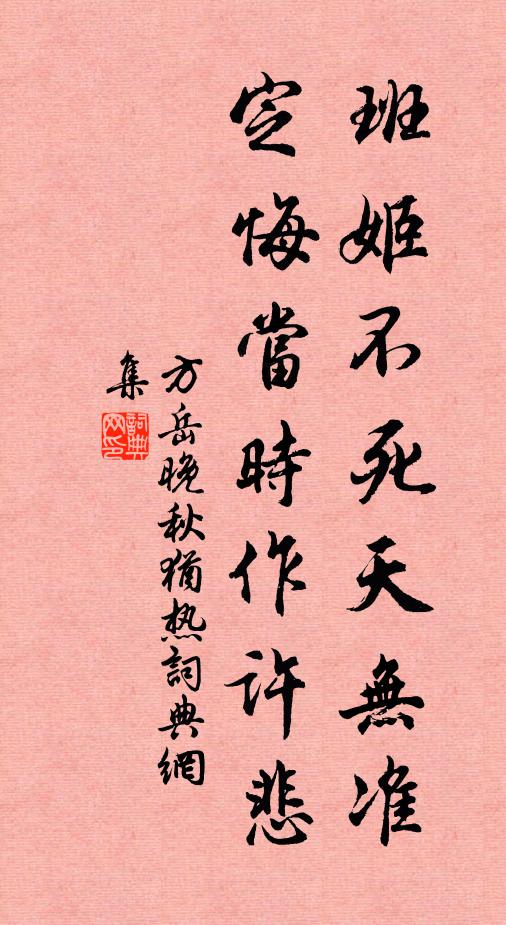 班姬不死天無准
定悔當時作許悲
方岳晚秋猶热詞典網
集
詞典网印